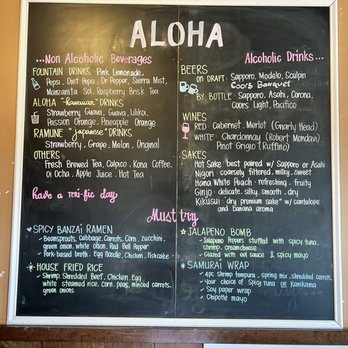 ALOHA
...Non Alcoholic Beverages
FOUNTAIN DRINKS Pink Lemonade,
Pepsi, Diet Pepsi, Dr Pepper, Sierra Mist,
Manzanita Sol, Raspberry Brisk Tea
ALOHA "hawaiian" DRINKS
Strawberry Guava, Guava, Lilikoi,
Passion Orange, Pineapple Orange
RAMUNE "japanese" DRINKS
Strawberry, Grape, Melon, Original
OTHERS
Fresh Brewed Tea, Calpico, Kona Coffee,
Oi Ocha, Apple Juice, Hot Tea
have a teri-fic day
Alcoholic Drinks...
BEERS
ON DRAFT: Sapporo, Modelo, Sculpin
Coors Banquet
BY BOTTLE: Sapporo, Asahi, Corona,
Coors Light, Pacifico
WINES
RED Cabernet, Merlot (Gnarly Head)
WHITE Chardonnay (Robert Mondavi)
Pinot Grigio (Ruffino)
SAKES
Hot Sake best paired w/ Sapporo or Asahi
Nigori - coarsely filtered, milky, sweet
Hana White Peach - refreshing, fruity
Ginjo - delicate, silky, smooth, dry
Kikusui - dry premium sake w/ cantalope
and banana aroma
Must try
SPICY BANZAI RAMEN
Beansprouts, Cabbage, Carrots, Corn, zucchini,
green onion, white onion, Red Bell Pepper
Pork-based broth, Egg Noodle, Chicken, Fishcake
HOUSE FRIED RICE
Shrimp, Shredded Beef, Chicken, Egg
white steamed rice, corn, peas, minced carrots,
green onions
JALAPENO BOMB
Jalapeno Pepper stuffed with spicy tuna,
shrimp, creamcheese
Glazed with eel sauce & spicy mayo
SAMURAI WRAP
4pc shrimp tempura, spring mix, shredded carrots
Your choice of Spicy tuna or Kanikama
Soy paper wrap
Chipotle mayo